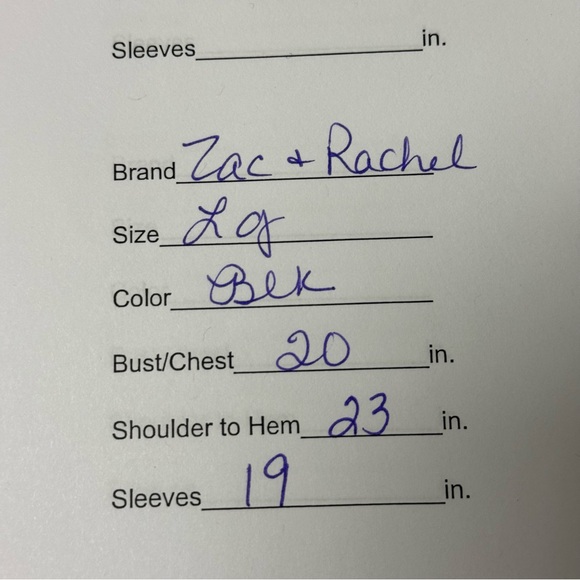 Sleeves____________________in.
Brand Zac + Rachel
Size Lg
Color Blk
Bust/Chest 20 in.
Shoulder to Hem 23 in.
Sleeves 19 in.